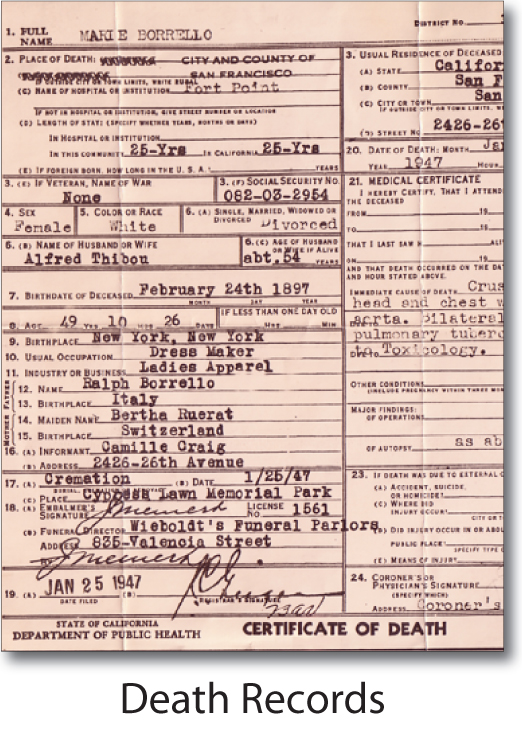 DISTRICT NO.
1. FULL NAME MARIE BORRELLO
2. PLACE OF DEATH: CITY AND COUNTY OF
SAN FRANCISCO
IF OUTSIDE CITY OR TOWN LIMITS, WRITE RURAL
(C) NAME OF HOSPITAL OR INSTITUTION Fort Point
IF NOT IN HOSPITAL OR INSTITUTION, GIVE STREET NUMBER OR LOCATION
(D) LENGTH OF STAY: (SPECIFY WHETHER YEARS, MONTHS OR DAYS)
IN HOSPITAL OR INSTITUTION
IN THIS COMMUNITY 25-Yrs IN CALIFORNIA 25-Yrs
(E) IF FOREIGN BORN, HOW LONG IN THE U. S. A. YEARS
3. (E) IF VETERAN, NAME OF WAR
None
3. (F) SOCIAL SECURITY NO.
062-03-2954
4. SEX
Female
5. COLOR OR RACE
White
6. (A) SINGLE, MARRIED, WIDOWED OR DIVORCED
Divorced
6. (B) NAME OF HUSBAND OR WIFE
Alfred Thibou
6. (C) AGE OF HUSBAND OR WIFE IF ALIVE
abt. 54 YEARS
7. BIRTHDATE OF DECEASED February 24th 1897
MONTH DAY YEAR
8. AGE 49 YRS 10 MOS 26 DAYS
IF LESS THAN ONE DAY OLD
HRS MIN
9. BIRTHPLACE New York, New York
10. USUAL OCCUPATION Dress Maker
11. INDUSTRY OR BUSINESS Ladies Apparel
MOTHER FATHER
12. NAME Ralph Borrello
13. BIRTHPLACE Italy
14. MAIDEN NAME Bertha Ruerat
15. BIRTHPLACE Switzerland
16. (A) INFORMANT Camille Craig
(B) ADDRESS 2426-26th Avenue
17. (A) Cremation (B) DATE 1/25/47
(C) PLACE Cypress Lawn Memorial Park
18. (A) EMBALMER'S SIGNATURE LICENSE NO 1561
(B) FUNERAL DIRECTOR Wieboldt's Funeral Parlors
ADDRESS 835-Valencia Street
19. (A) JAN 25 1947 (B)
DATE FILED REGISTRAR'S SIGNATURE
3. USUAL RESIDENCE OF DECEASED
(A) STATE Califor
(B) COUNTY San F
(C) CITY OR TOWN San
IF OUTSIDE CITY OR TOWN LIMITS, W
STREET NO 2426-26
20. DATE OF DEATH: MONTH Ja
YEAR 1947 HOUR
21. MEDICAL CERTIFICATE
I HEREBY CERTIFY, THAT I ATTEND
THE DECEASED
FROM 19
TO 19
THAT I LAST SAW H ALI
ON 19
AND THAT DEATH OCCURRED ON THE DA
AND HOUR STATED ABOVE.
IMMEDIATE CAUSE OF DEATH Crus
head and chest w
aorta. Bilateral
pulmonary tuberc
DUE TO Toxicology.
OTHER CONDITIONS
(INCLUDE PREGNANCY WITHIN THREE MON
MAJOR FINDINGS:
OF OPERATIONS
OF AUTOPSY as ab
23. IF DEATH WAS DUE TO EXTERNAL C
(A) ACCIDENT, SUICIDE,
OR HOMICIDE?
(C) WHERE DID
INJURY OCCUR?
CITY OR T
(D) DID INJURY OCCUR IN OR ABO
PUBLIC PLACE?
SPECIFY TYPE O
(E) MEANS OF INJURY
24. CORONER'S OR
PHYSICIAN'S SIGNATURE
(SPECIFY WHICH)
ADDRESS Coroner's
STATE OF CALIFORNIA
DEPARTMENT OF PUBLIC HEALTH
CERTIFICATE OF DEATH
Death Records